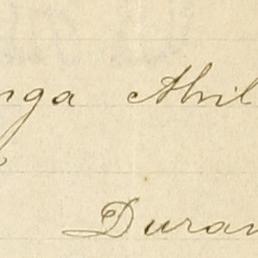 nga Abril
Duran